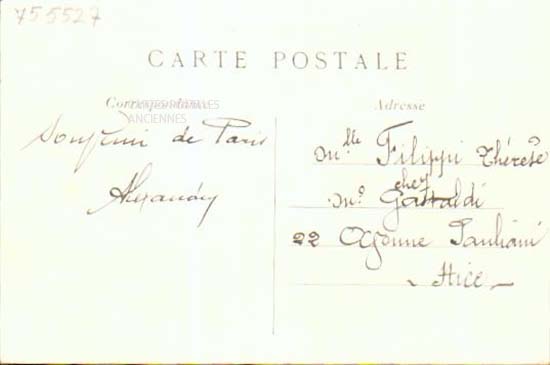 755527
CARTE POSTALE
Correspondance
CARTES POSTALES
ANCIENNES
Adresse
Souvenir de Paris
Mlle Filippi Thérèse
chez
Mo Gastaldi
22 Avenue Pauliani
Nice